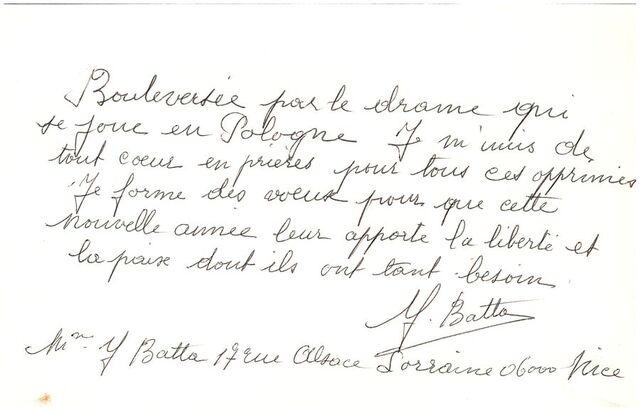 Bouleversée par le drame qui
se joue en Pologne Je m'unis de
tout coeur en prières pour tous ces opprimés
Je forme des voeux pour que cette
nouvelle année leur apporte la liberté et
la paix dont ils ont tant besoin
Y. Batta
Mme Y Batta 17 rue Alsace Lorraine 06000 Nice